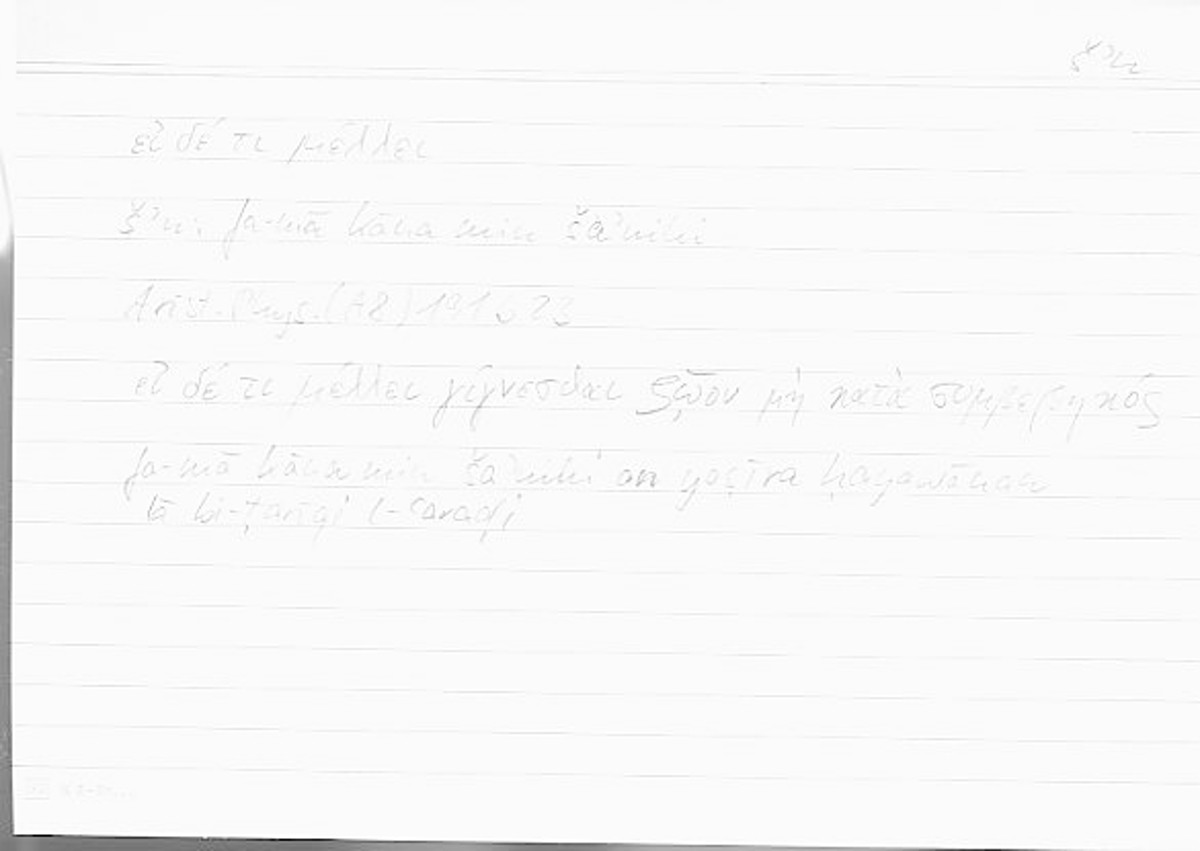 šʾn
εἰ δέ τι μέλλει
šʾn: fa-mā kāna min šaʾnihi
Arist. Phys. (A8) 191 b 23
εἰ δέ τι μέλλει γίγνεσθαι ζῷον μὴ κατὰ συμβεβηκός
fa-mā kāna min šaʾnihi an yaṣīra ḥayawānan
lā bi-ṭarīqi l-ʿaraḍi